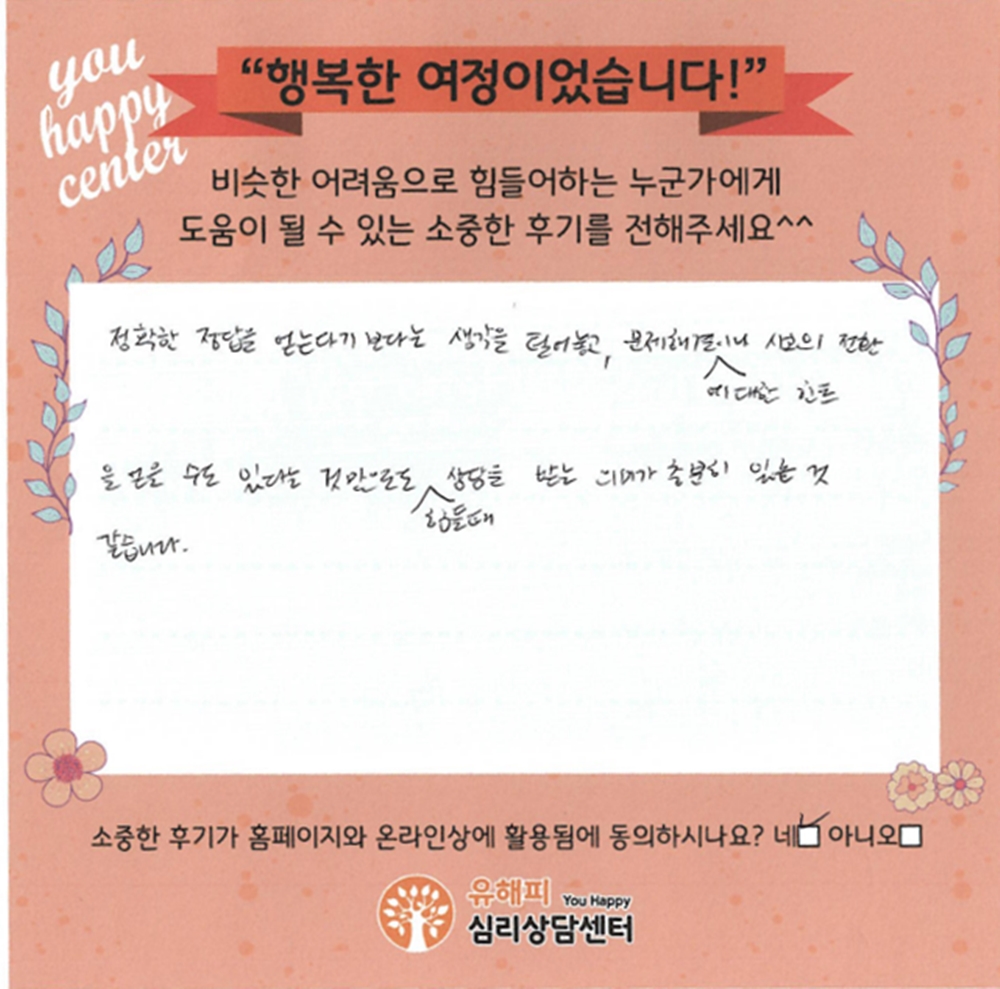 you
happy
center
“행복한 여정이었습니다!”
비슷한 어려움으로 힘들어하는 누군가에게
도움이 될 수 있는 소중한 후기를 전해주세요^^
정확한 정답을 얻는다기 보다는 생각을 털어놓고, 문제해결이나 시보의 전환
에 대한 힌트
을 얻을 수도 있다는 것만으로도 상담을 받는 의미가 충분히 있을 것
힘들때
같습니다.
소중한 후기가 홈페이지와 온라인상에 활용됨에 동의하시나요? 네 아니오
유해피 You Happy
심리상담센터